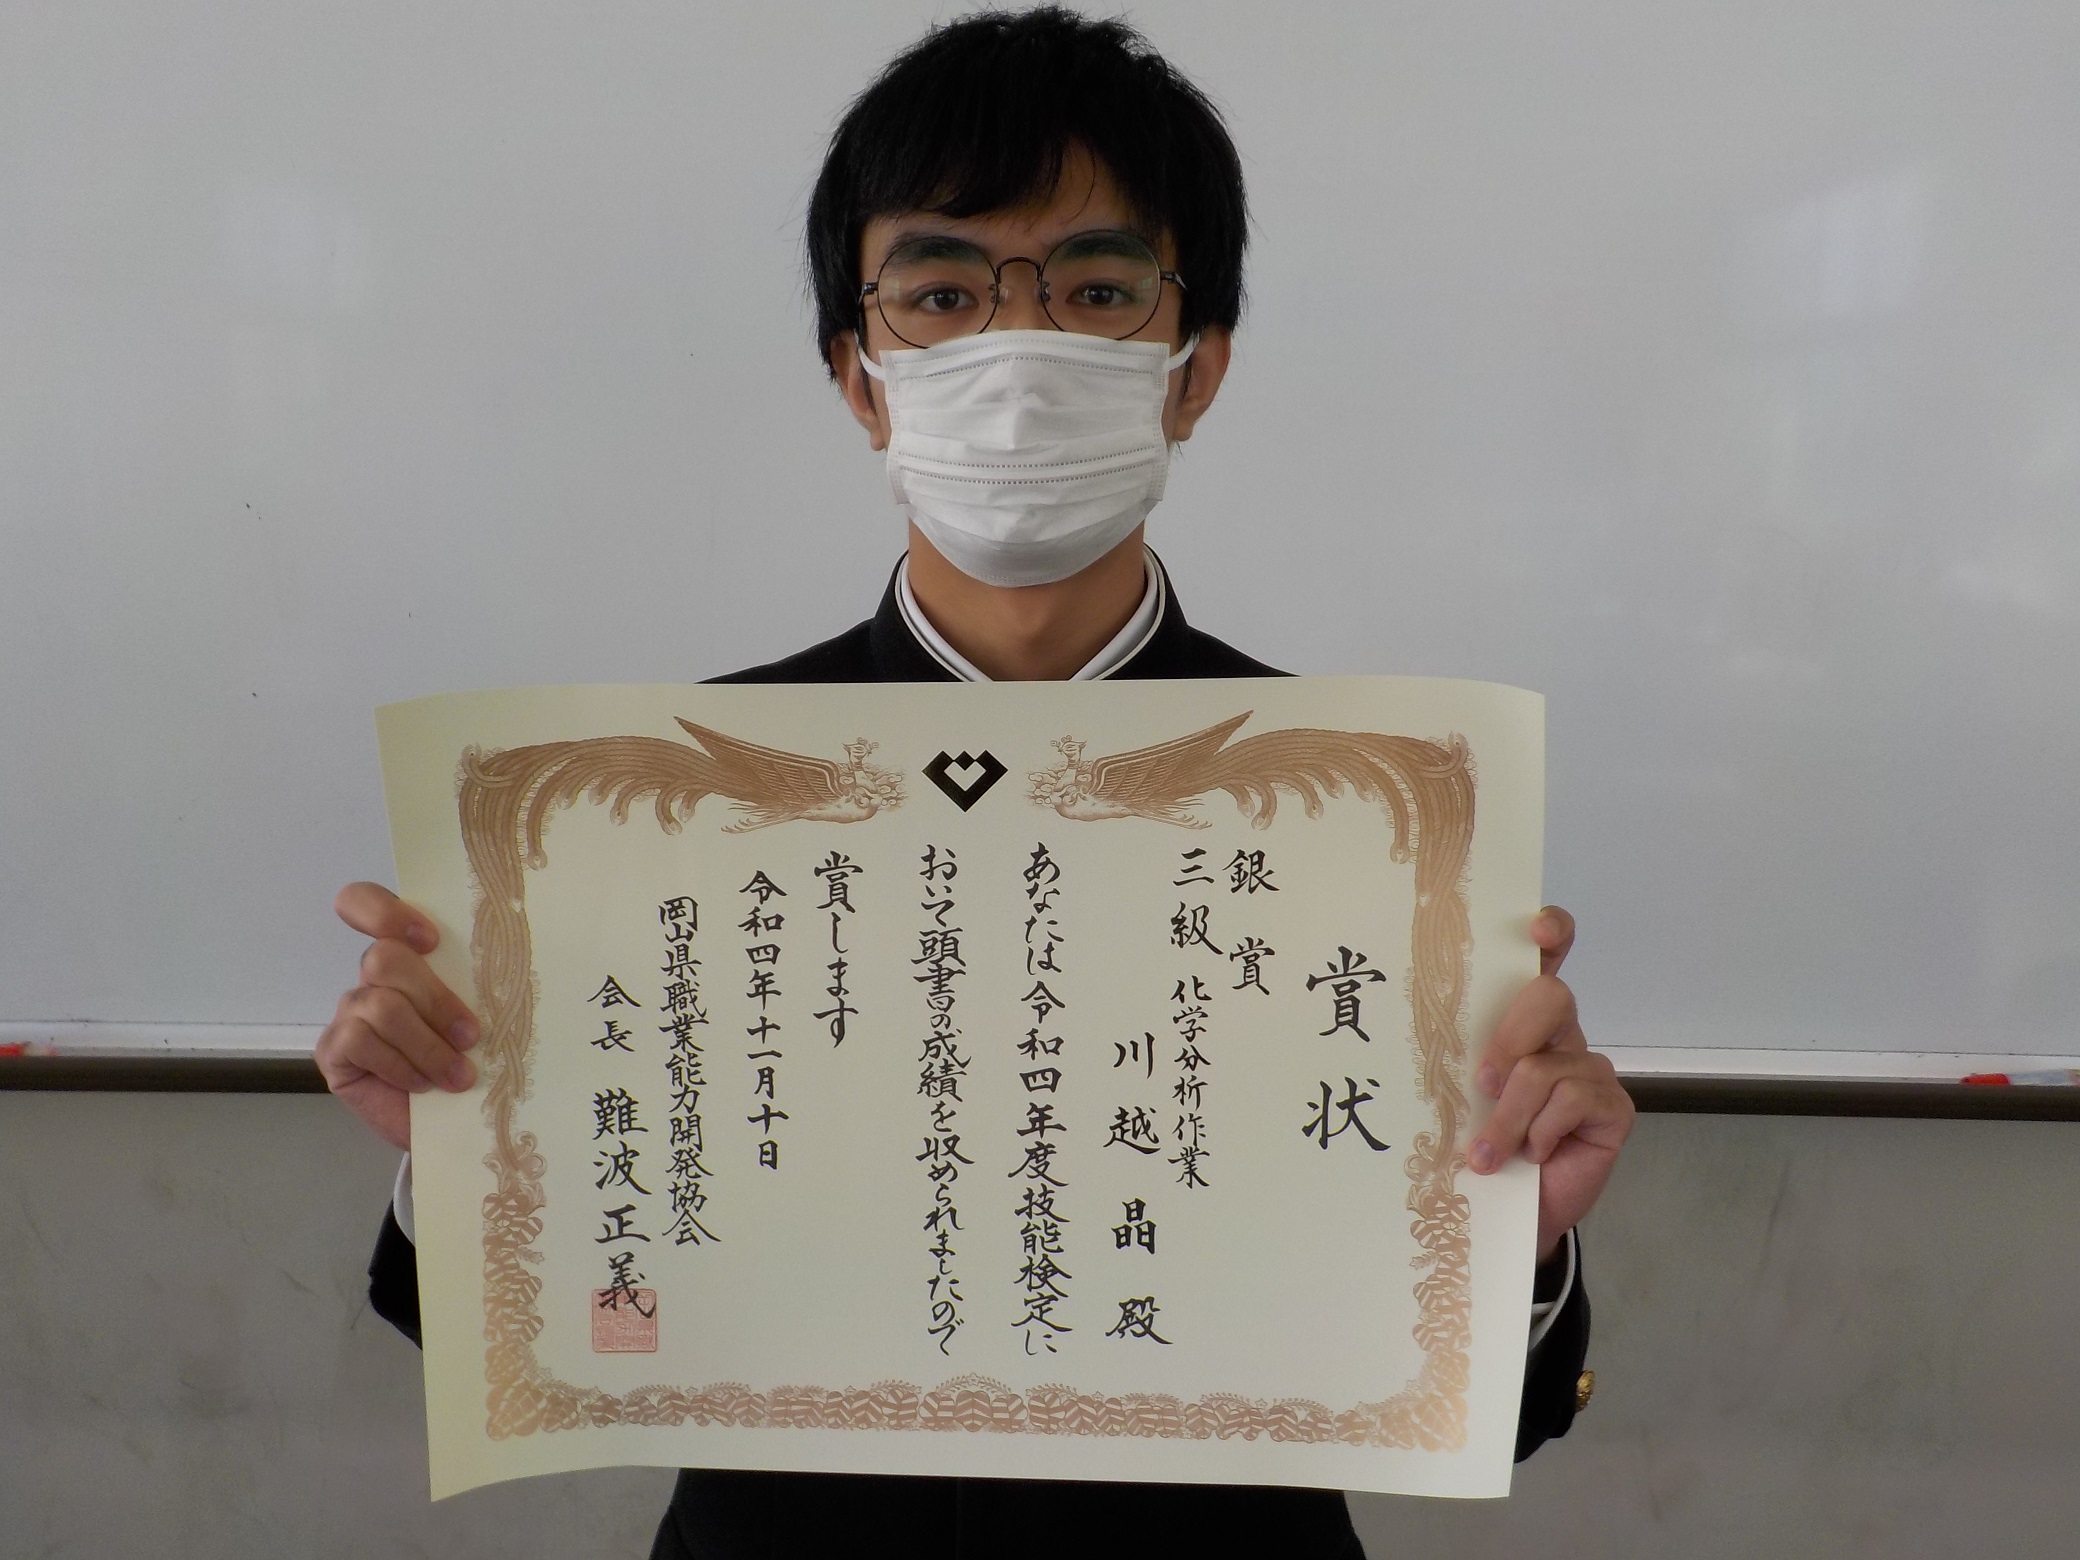 賞状
銀賞
三級 化学分析作業
川越晶殿
あなたは令和四年度技能検定に
おいて頭書の成績を収められましたので
賞します
令和四年十一月十日
岡山県職業能力開発協会
会長 難波正義